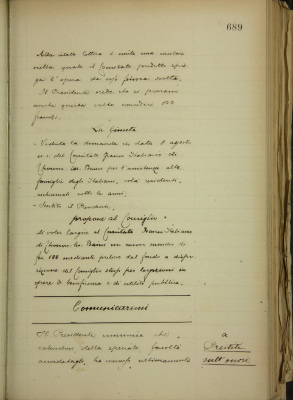 689
Alla citata lettera è unita una
nella quale il Comitato predetto spie-
ga l'opera da esso finora svolta.
Il Presidente crede che si possano
anche questa volta concedere 100
franchi.
La Giunta
- Veduta la domanda in data 8 agosto
u. s. del Comitato Franco Italiano di
Thonon les Bains per l'assistenza alle
famiglie degli Italiani, colà residenti,
richiamati sotto le armi.
- Sentito il Presidente,
propone al Consiglio
di voler largire al Comitato Franco Italiano
di Thonon les Bains un nuovo sussidio di
fr. 100 mediante prelievo dal fondo a dispo-
sizione del Consiglio stesso per largizioni in
opere di beneficenza e di utilità pubblica.
Comunicazioni
Il Presidente annuncia che,
valendosi della speciale facoltà
accordatagli, ha messo ultimamente
a
Prestiti
sull'onore